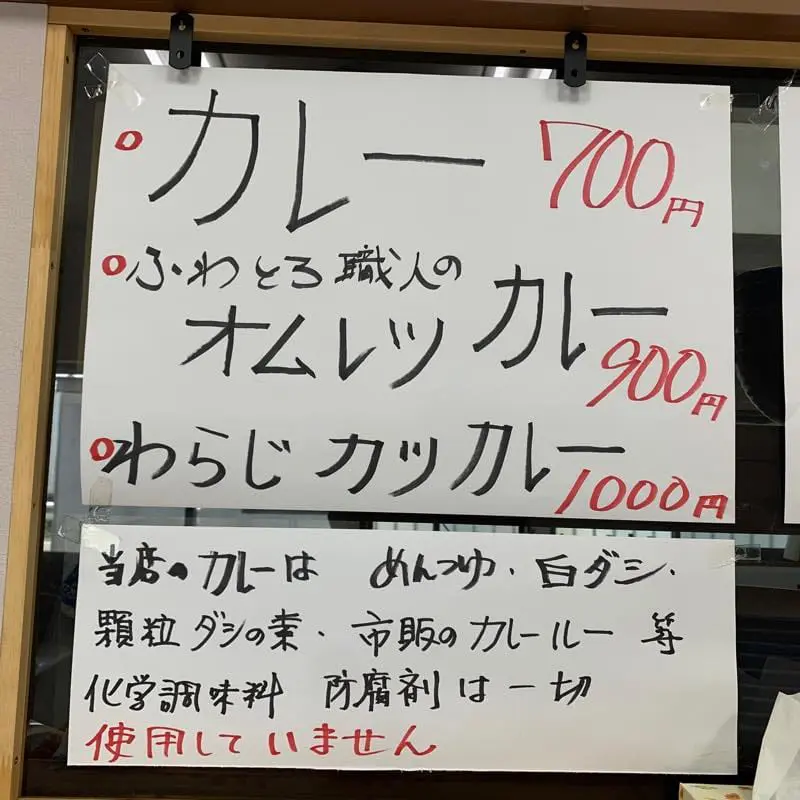 ○カレー 700円
○ふわとろ職人の
オムレツカレー 900円
○わらじカツカレー 1000円
当店のカレーは めんつゆ・白ダシ・
顆粒ダシの素・市販のカレールー等
化学調味料 防腐剤は一切
使用していません